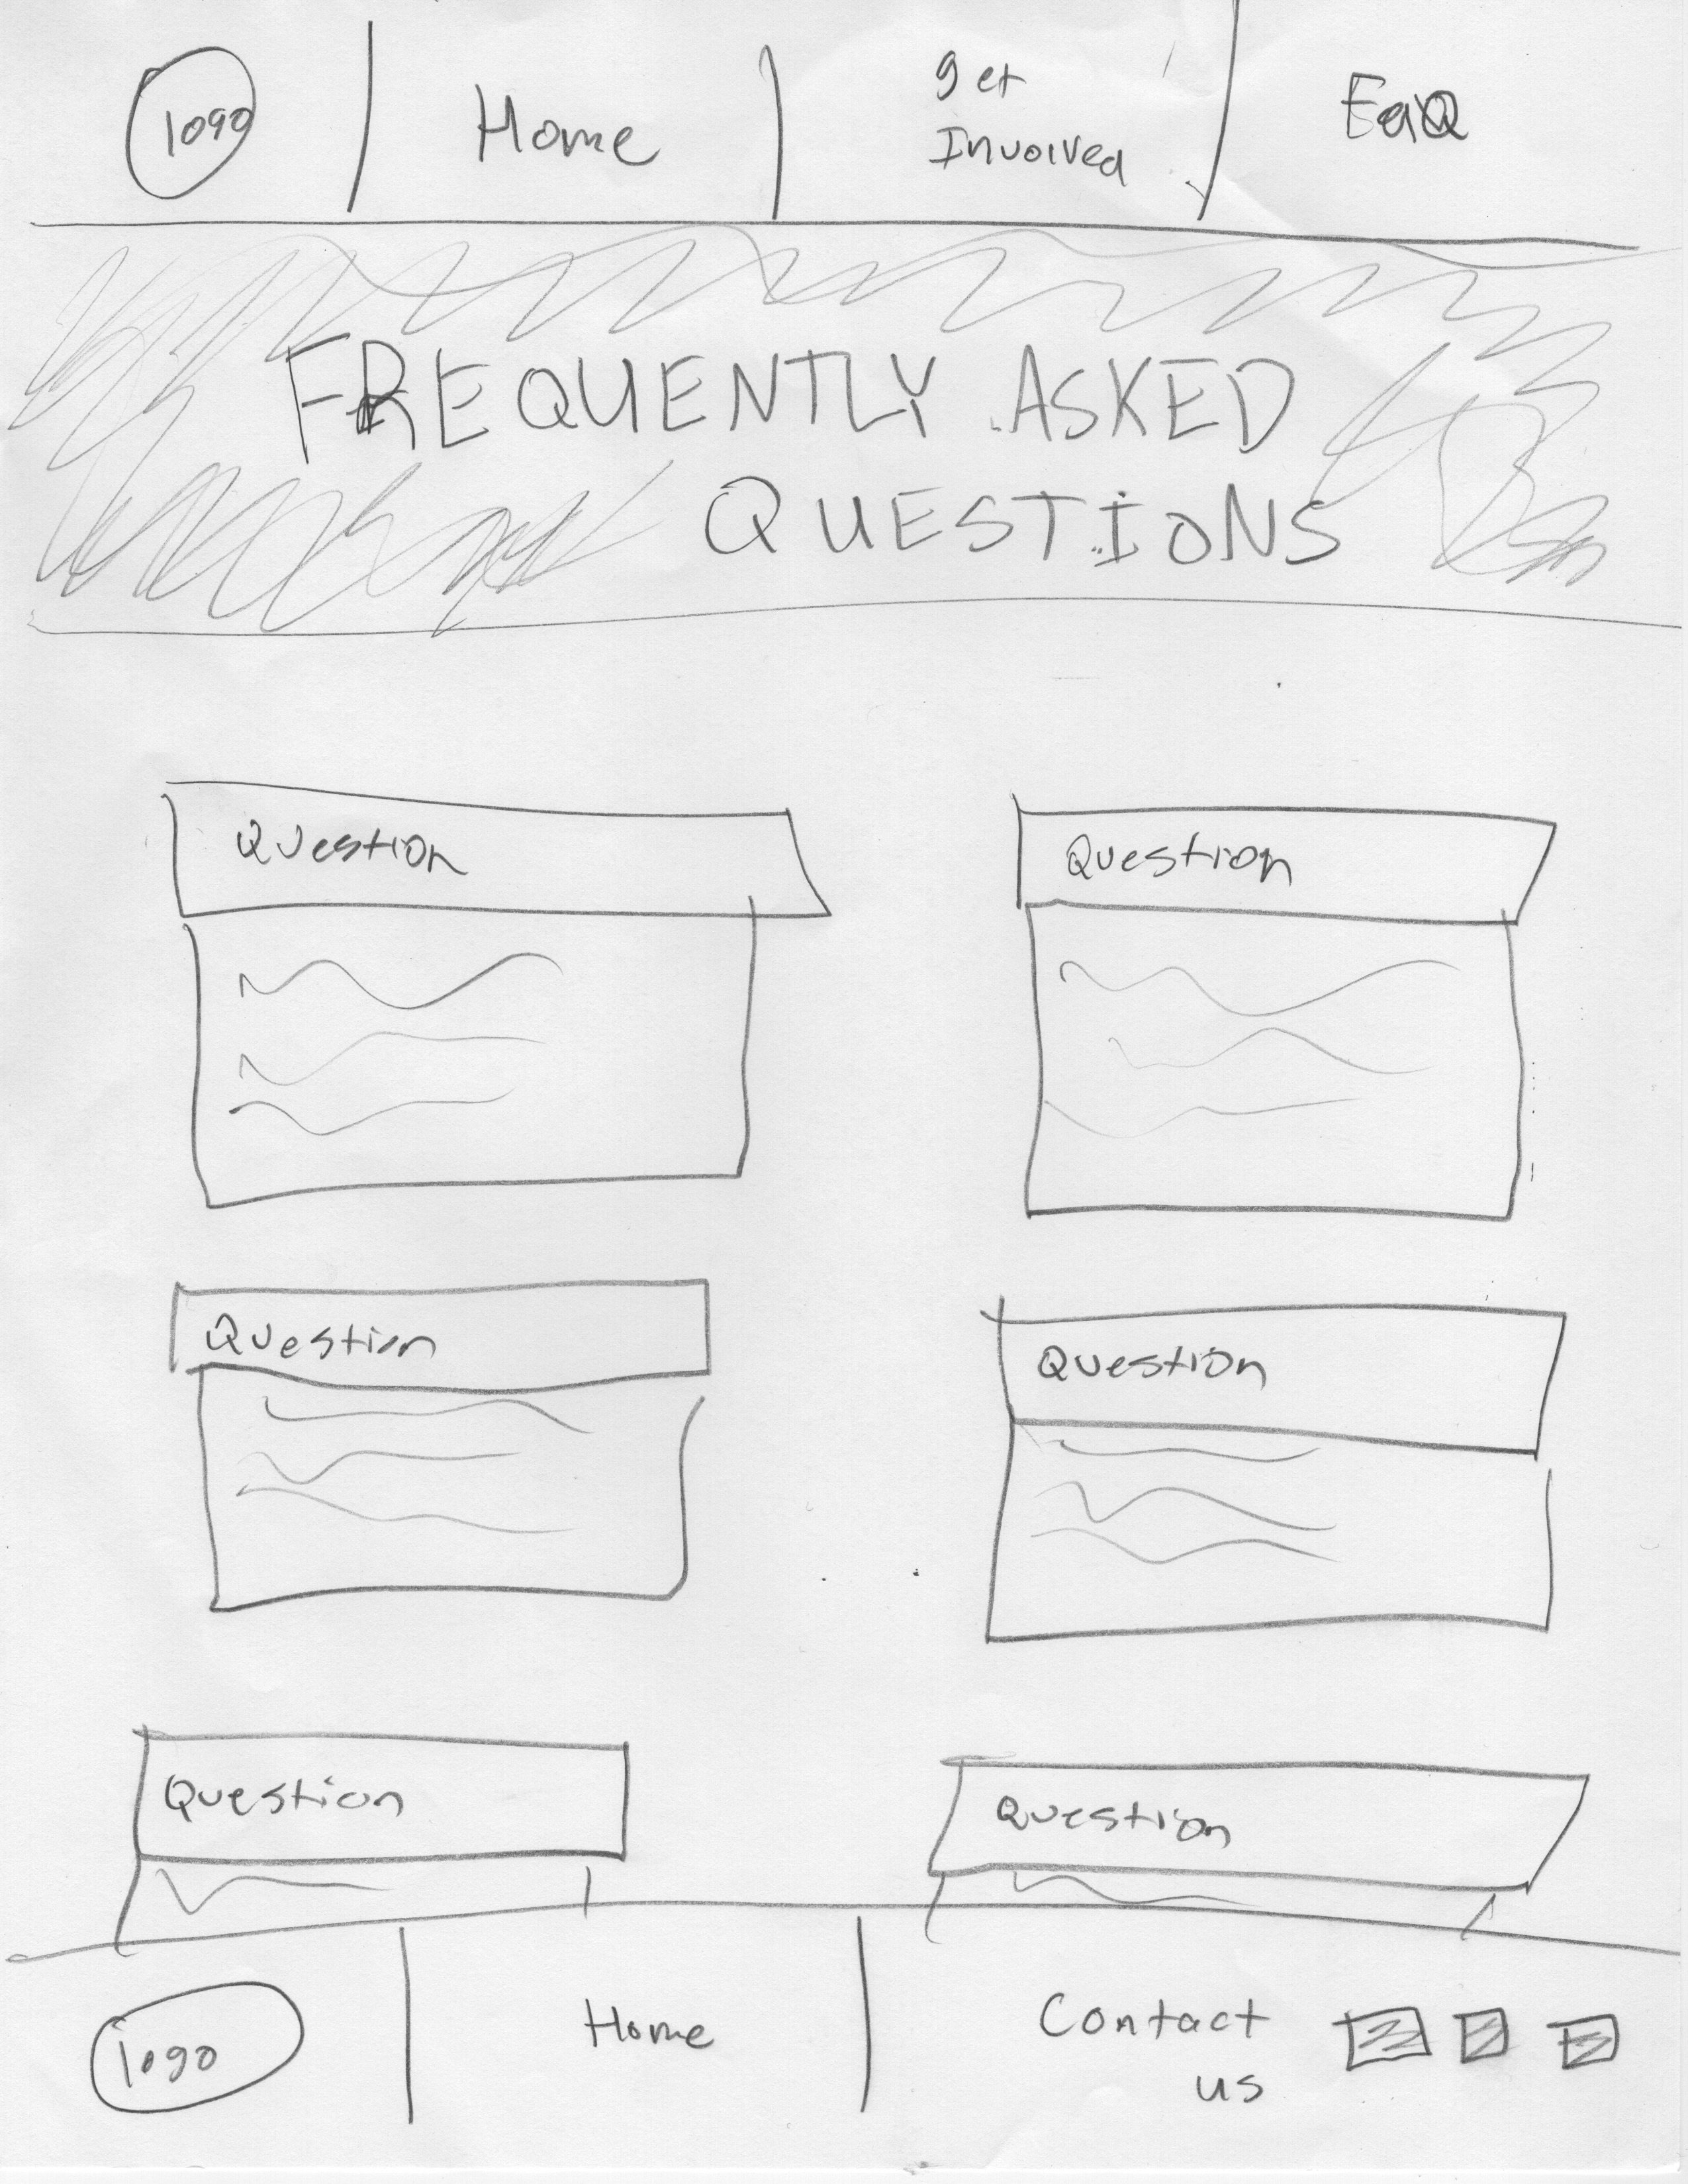 logo
Home
get
Involved
FaQ
FREQUENTLY ASKED
QUESTIONS
Question
Question
Question
Question
Question
Question
logo
Home
Contact
us